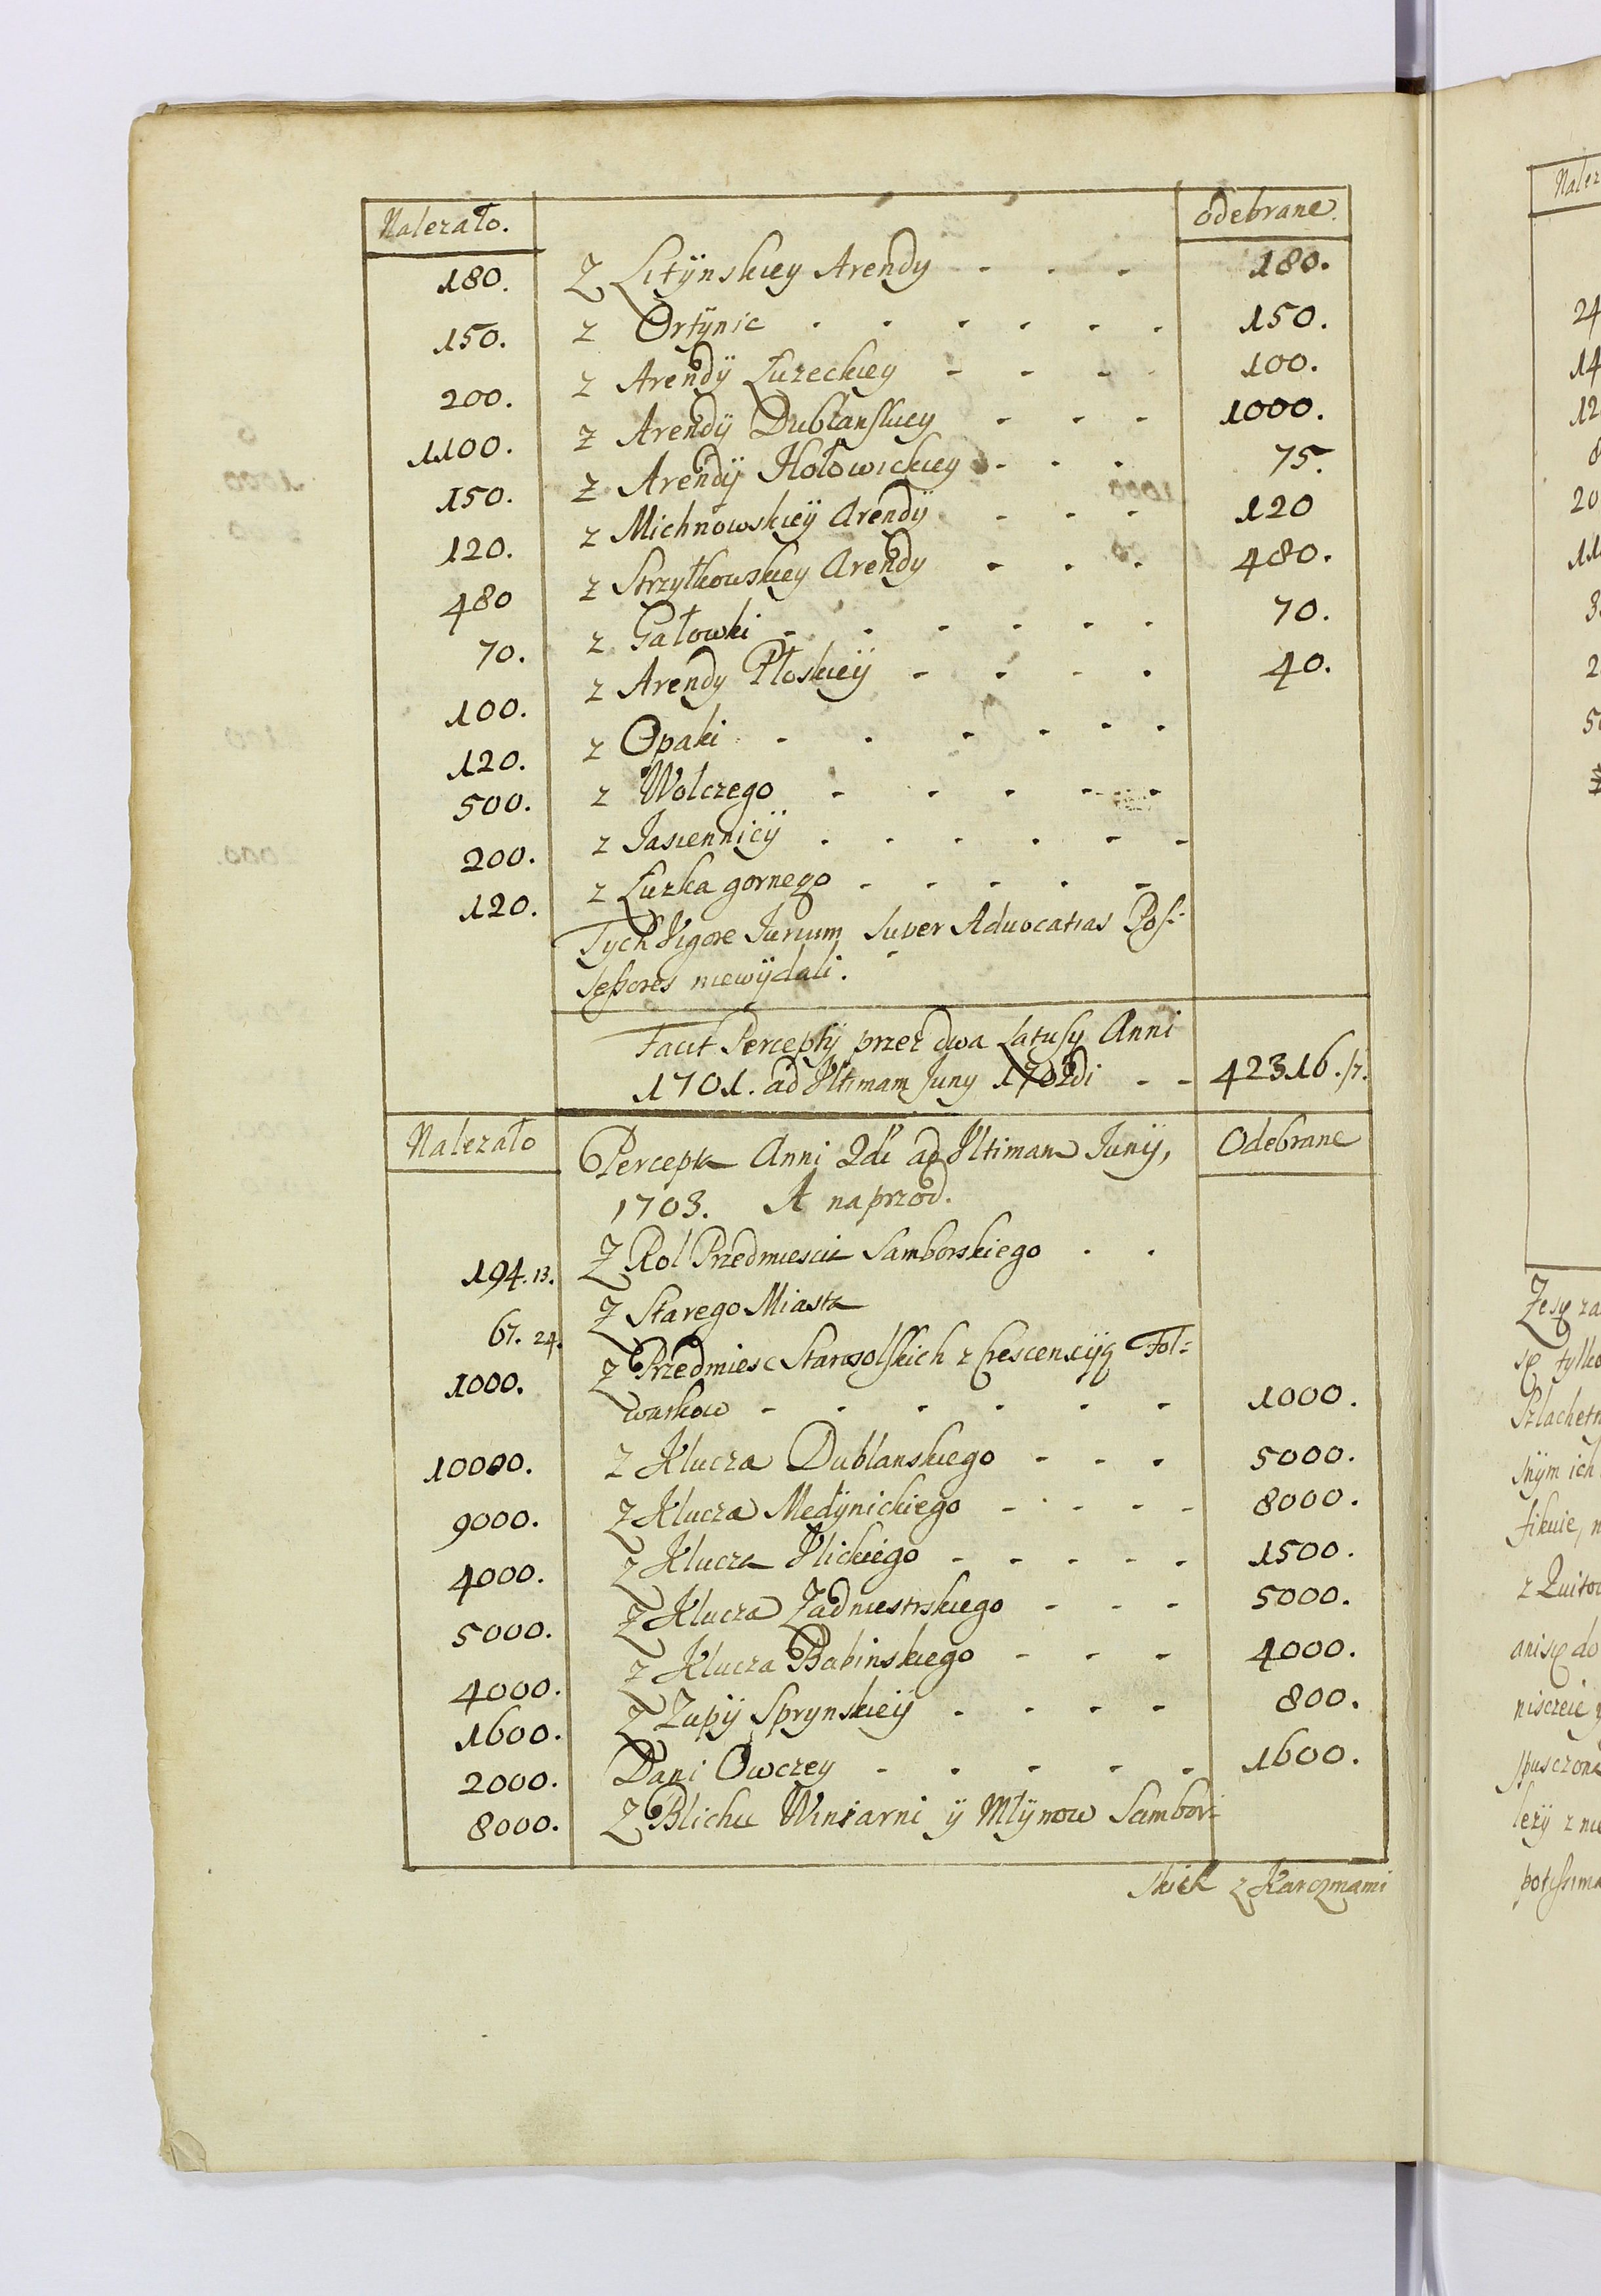 Nalezało. odebrane.
180. Z Litÿnskiey Arendy - - - 180.
150. z Ortÿnic - - - - - - 150.
200. z Arendÿ Łuzeckiey - - - - 100.
1100. z Arendÿ Dublanskiey - - - 1000.
150. z Arendÿ Hołowickiey - - - 75.
120. z Michnowskieÿ Arendÿ - - - 120
480 z Strzyłkowskiey Arendy - - - 480.
70. z Gałowki - - - - - - 70.
100. z Arendy Płoskieÿ - - - - 40.
120. z Opaki - - - - - -
500. z Wolczego - - - - -
200. z Jasiennicÿ - - - - - -
120. z Łuzka gornego - - - - -
Tych Vigore Jurium super Advocatias Pos-
sessores niewÿdali.
Facit Perceptÿ przez dwa Latusy Anni
1701. ad Vltimam Juny 1702di - - 42316./7.
Nalezało Percepta Anni 2di ad Vltimam Junÿ, Odebrane
1703. A naprzod.
194.13. Z Rol Przedmiescia Samborskiego - -
67. 24. Z Starego Miasta
1000. Z Przedmiesc Starosolskich z Crescencÿą Fol-
warkow - - - - - - 1000.
10000. Z Klucza Dublanskiego - - - 5000.
9000. Z Klucza Medÿnickiego - - - - 8000.
4000. Z Klucza Vlickiego - - - - - 1500.
5000. Z Klucza Zadniestrskiego - - - 5000.
4000. z Klucza Babinskiego - - - 4000.
1600. Z Zupÿ Sprynskieÿ - - - - 800.
2000. Dani Owczey - - - - - 1600.
8000. Z Blichu Winiarni ÿ Młÿnow Sambor-
skich z Karczmami
Nalez
24
14
12
8
20
11
3
2
5
Zesą za
są tylko
Szlachetn
snÿm ich
fikuie, n
z Quitow
anisą do
nisczeie y
spusczona
lezÿ z nie
potissima